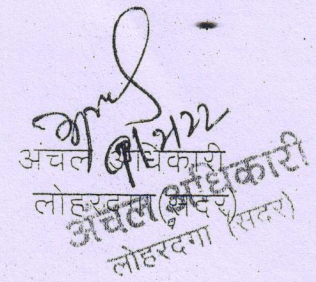 अंचल अधिकारी
लोहरदगा (सदर)
अंचल अधिकारी
लोहरदगा (सदर)